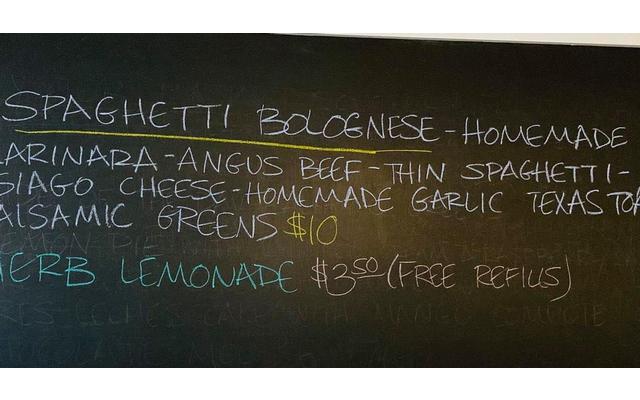 SPAGHETTI BOLOGNESE - HOMEMADE
ARINARA - ANGUS BEEF - THIN SPAGHETTI -
SIAGO CHEESE - HOMEMADE GARLIC TEXAS TOA
ALSAMIC GREENS $10
HERB LEMONADE $3.50 (FREE REFILLS)